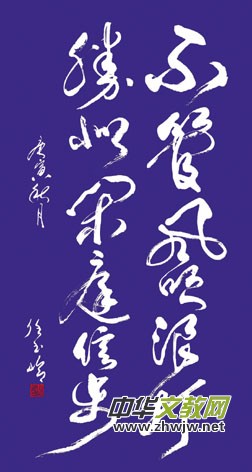 不管风吹浪打
胜似闲庭信步
庚寅秋月
中华文教网
www.zhwjw.net